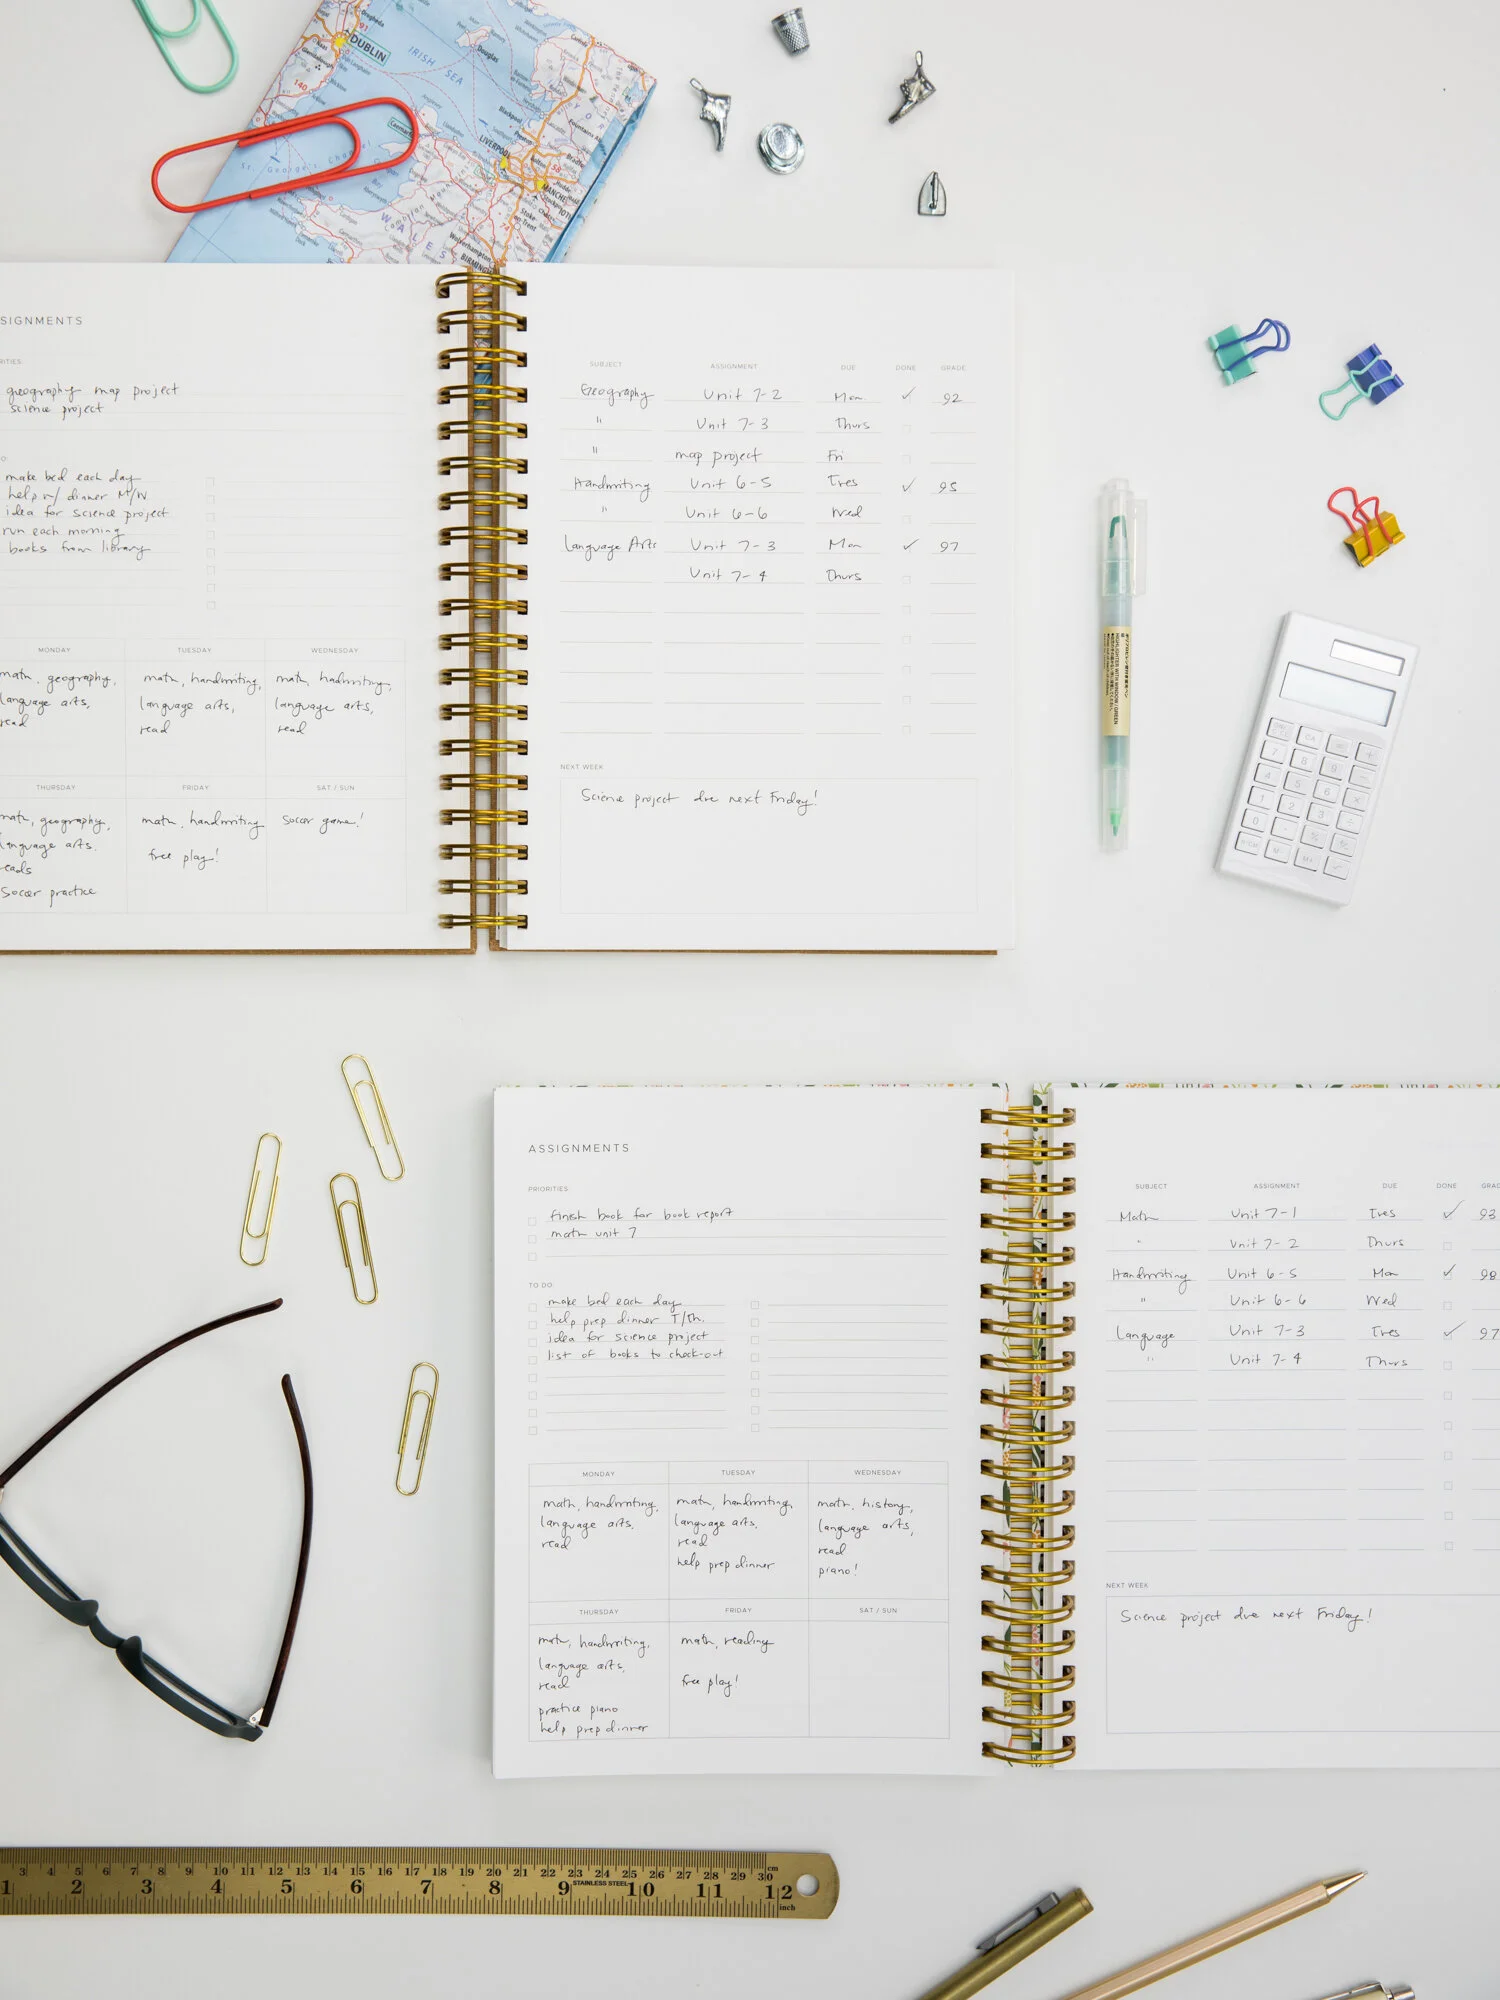 DUBLIN
IRISH SEA
Douglas
Blackpool
LIVERPOOL
St. George's Channel
WALES
Stoke-
on-Trent
Wolverhampton
SIGNMENTS
RITIES
geography map project
science project
O
make bed each day
help w/ dinner M/W
idea for science project
run each morning
books from library
MONDAY TUESDAY WEDNESDAY
math, geography, math, handwriting, math, hadwriting,
language arts, language arts, language arts,
read read read
THURSDAY FRIDAY SAT / SUN
math, geography, math, handwriting soccer game!
language arts,
free play!
reads
Soccer practice
SUBJECT ASSIGNMENT DUE DONE GRADE
Geography Unit 7-2 Mon ✓ 92
" Unit 7-3 Thurs
" map project Fri
Handwriting Unit 6-5 Tues ✓ 95
" Unit 6-6 Wed
Language Arts Unit 7-3 Mon ✓ 97
Unit 7-4 Thurs
NEXT WEEK
Science project due next Friday!
HIGHLIGHTER WITH WINDOW / GREEN
CA
7 8 9 −
4 5 6 ×
1 2 3 ÷
0 .
ASSIGNMENTS
PRIORITIES
finish book for book report
math unit 7
TO DO
make bed each day
help prep dinner T/Th.
idea for science project
list of books to check-out
MONDAY TUESDAY WEDNESDAY
math, handwriting, math, handwriting, math, history,
language arts, language arts, language arts,
read read read
help prep dinner piano!
THURSDAY FRIDAY SAT / SUN
math, handwriting, math, reading
language arts,
read free play!
practice piano
help prep dinner
SUBJECT ASSIGNMENT DUE DONE GRAD
Math Unit 7-1 Tues ✓ 93
" Unit 7-2 Thurs
Handwriting Unit 6-5 Mon ✓ 98
" Unit 6-6 Wed
Language Unit 7-3 Tues ✓ 97
" Unit 7-4 Thurs
NEXT WEEK
Science project due next Friday!
3 4 5 6 7 8 9 10 11 12 13 14 15 16 17 18 19 20 21 22 23 24 25 26 27 28 29 30 cm
STAINLESS STEEL
1 2 3 4 5 6 7 8 9 10 11 12 inch